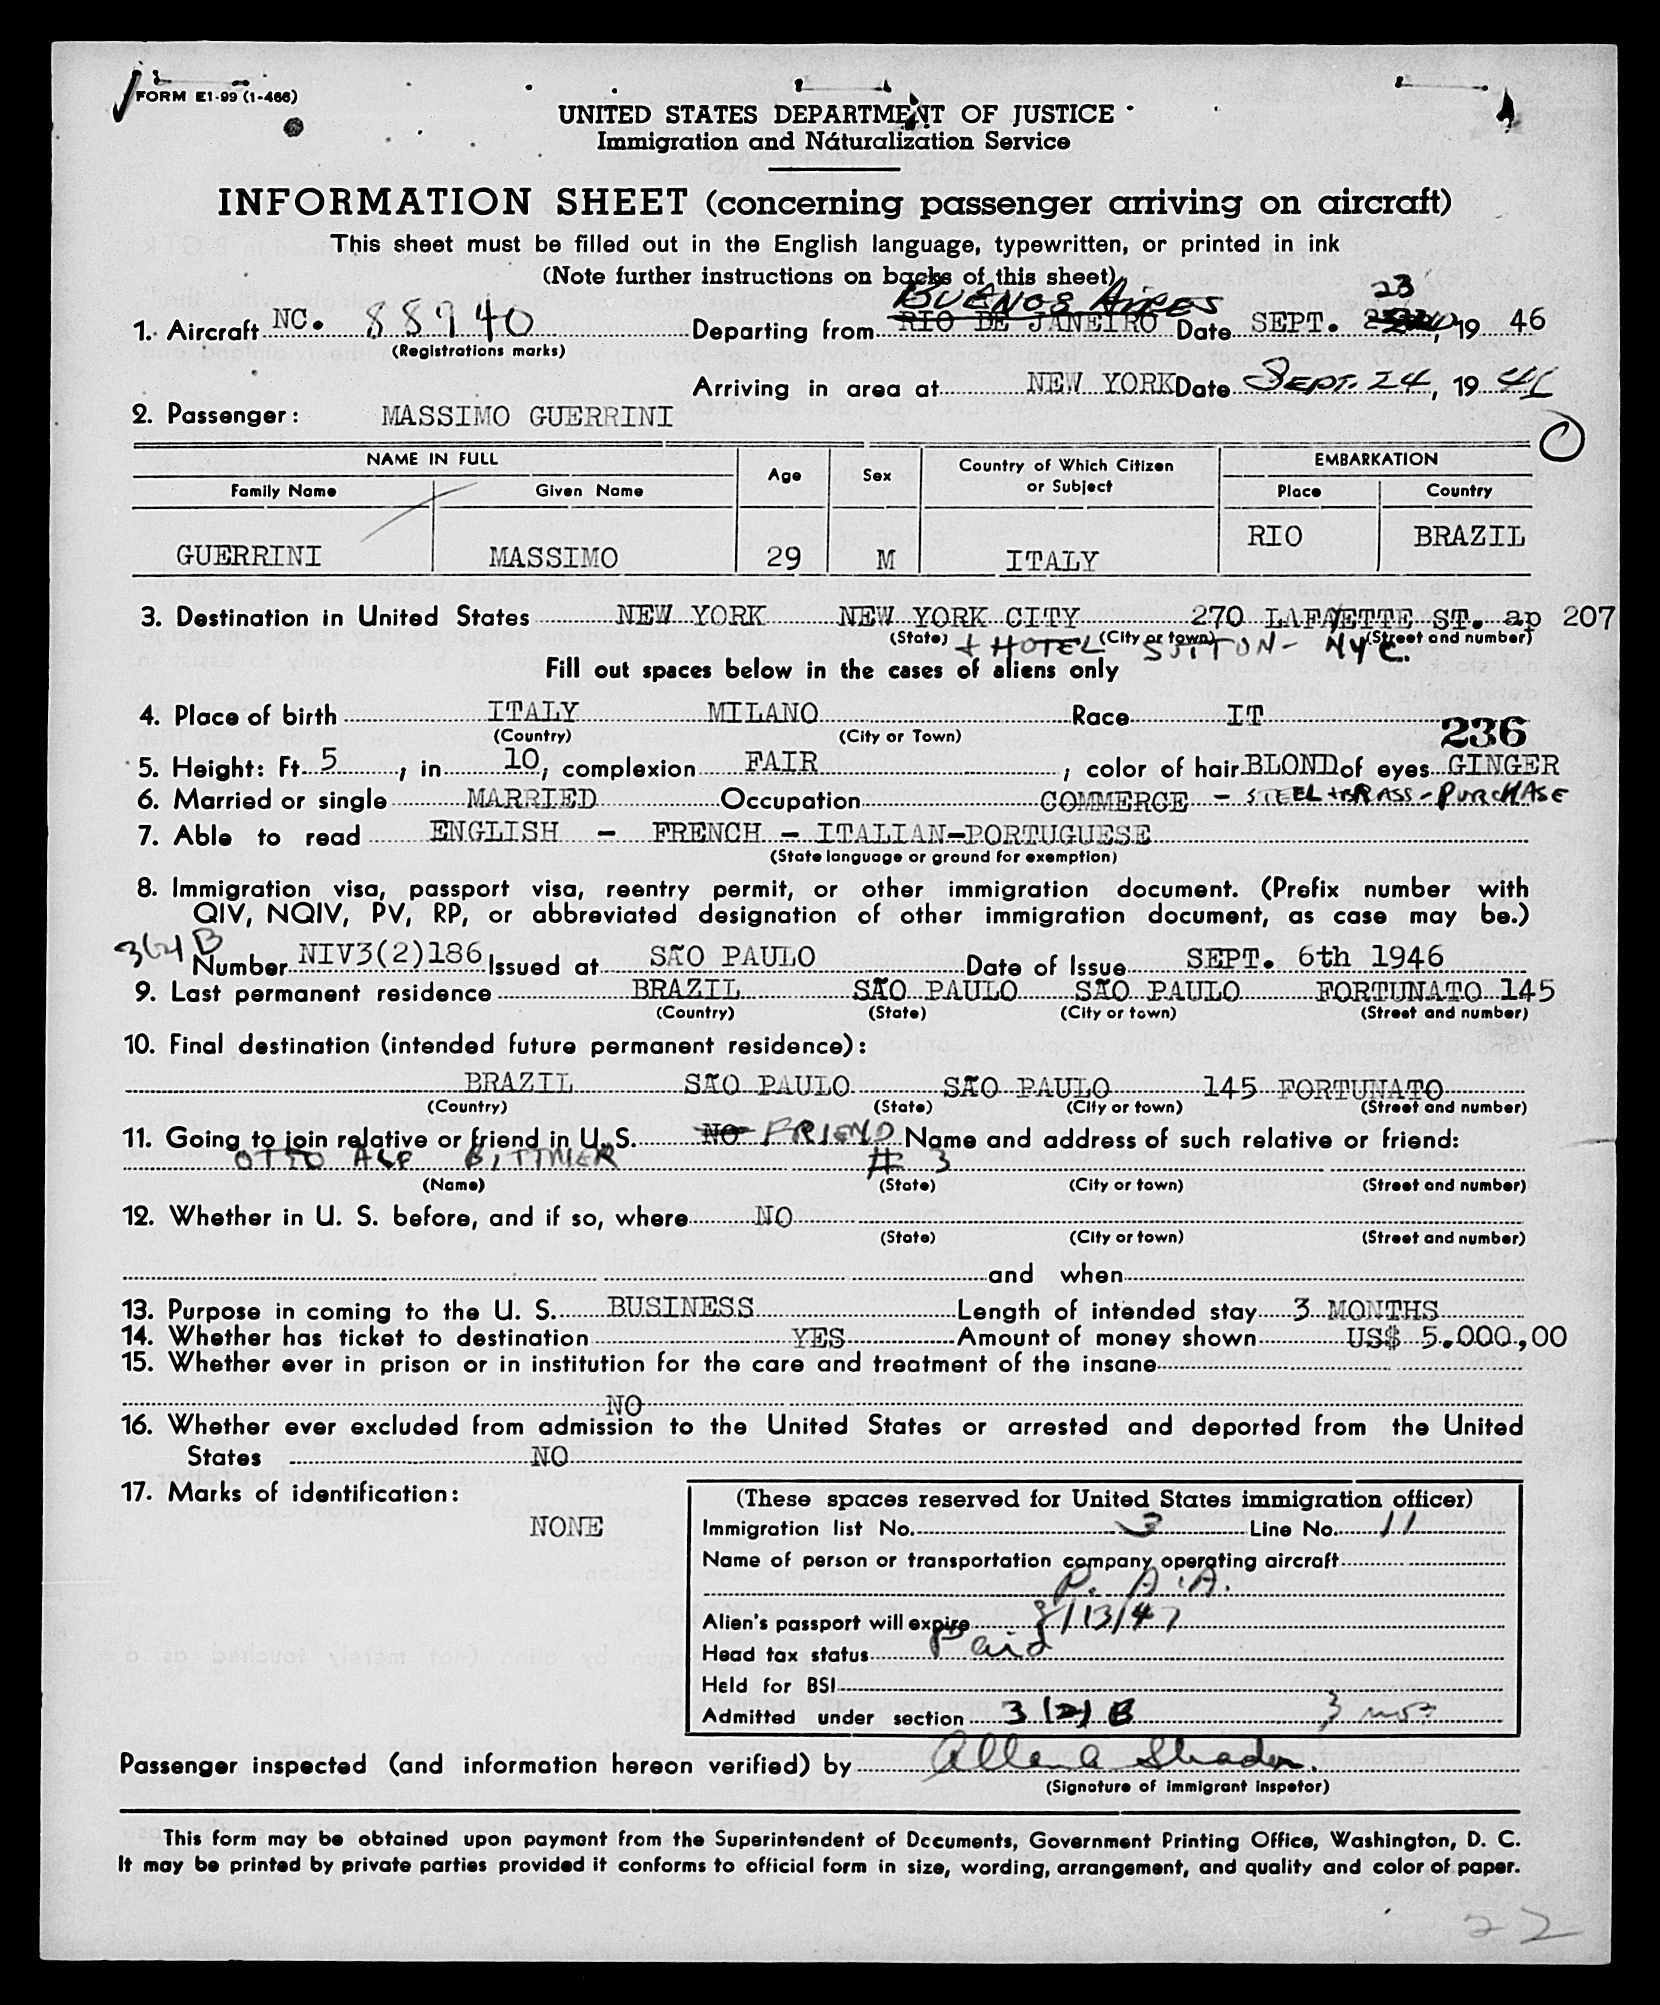 FORM E1-99 (1-466)
UNITED STATES DEPARTMENT OF JUSTICE
Immigration and Naturalization Service
INFORMATION SHEET (concerning passenger arriving on aircraft)
This sheet must be filled out in the English language, typewritten, or printed in ink
(Note further instructions on backs of this sheet)
BUENOS AIRES 23
1. Aircraft NC. 88940 Departing from RIO DE JANEIRO Date SEPT. , 19 46
(Registrations marks)
Arriving in area at NEW YORK Date SEPT. 24, 19 46
2. Passenger: MASSIMO GUERRINI
NAME IN FULL Age Sex Country of Which Citizen or Subject EMBARKATION
Family Name Given Name Place Country
GUERRINI MASSIMO 29 M ITALY RIO BRAZIL
3. Destination in United States NEW YORK NEW YORK CITY 270 LAFAYETTE ST. ap 207
(State) (City or town) (Street and number)
+ HOTEL SUTTON - NYC.
Fill out spaces below in the cases of aliens only
4. Place of birth ITALY MILANO Race IT
(Country) (City or Town)
236
5. Height: Ft. 5, in. 10; complexion FAIR; color of hair BLOND of eyes GINGER
6. Married or single MARRIED Occupation COMMERCE - STEEL + BRASS - PURCHASE
7. Able to read ENGLISH - FRENCH - ITALIAN-PORTUGUESE
(State language or ground for exemption)
8. Immigration visa, passport visa, reentry permit, or other immigration document. (Prefix number with
QIV, NQIV, PV, RP, or abbreviated designation of other immigration document, as case may be.)
Number NIV3(2)186 Issued at SÃO PAULO Date of Issue SEPT. 6th 1946
9. Last permanent residence BRAZIL SÃO PAULO SÃO PAULO FORTUNATO 145
(Country) (State) (City or town) (Street and number)
10. Final destination (intended future permanent residence):
BRAZIL SÃO PAULO SÃO PAULO 145 FORTUNATO
(Country) (State) (City or town) (Street and number)
11. Going to join relative or friend in U. S. NO FRIEND Name and address of such relative or friend:
OTTO ALF BITTNER # 3
(Name) (State) (City or town) (Street and number)
12. Whether in U. S. before, and if so, where NO
(State) (City or town) (Street and number)
and when
13. Purpose in coming to the U. S. BUSINESS Length of intended stay 3 MONTHS
14. Whether has ticket to destination YES Amount of money shown US$ 5.000,00
15. Whether ever in prison or in institution for the care and treatment of the insane
NO
16. Whether ever excluded from admission to the United States or arrested and deported from the United
States NO
17. Marks of identification:
NONE
(These spaces reserved for United States immigration officer)
Immigration list No. 3 Line No. 11
Name of person or transportation company operating aircraft
P. A. A.
Alien's passport will expire 8/13/47
Head tax status Paid
Held for BSI
Admitted under section 3 (2) B 3 mos
Passenger inspected (and information hereon verified) by
(Signature of immigrant inspetor)
This form may be obtained upon payment from the Superintendent of Documents, Government Printing Office, Washington, D. C.
It may be printed by private parties provided it conforms to official form in size, wording, arrangement, and quality and color of paper.
22